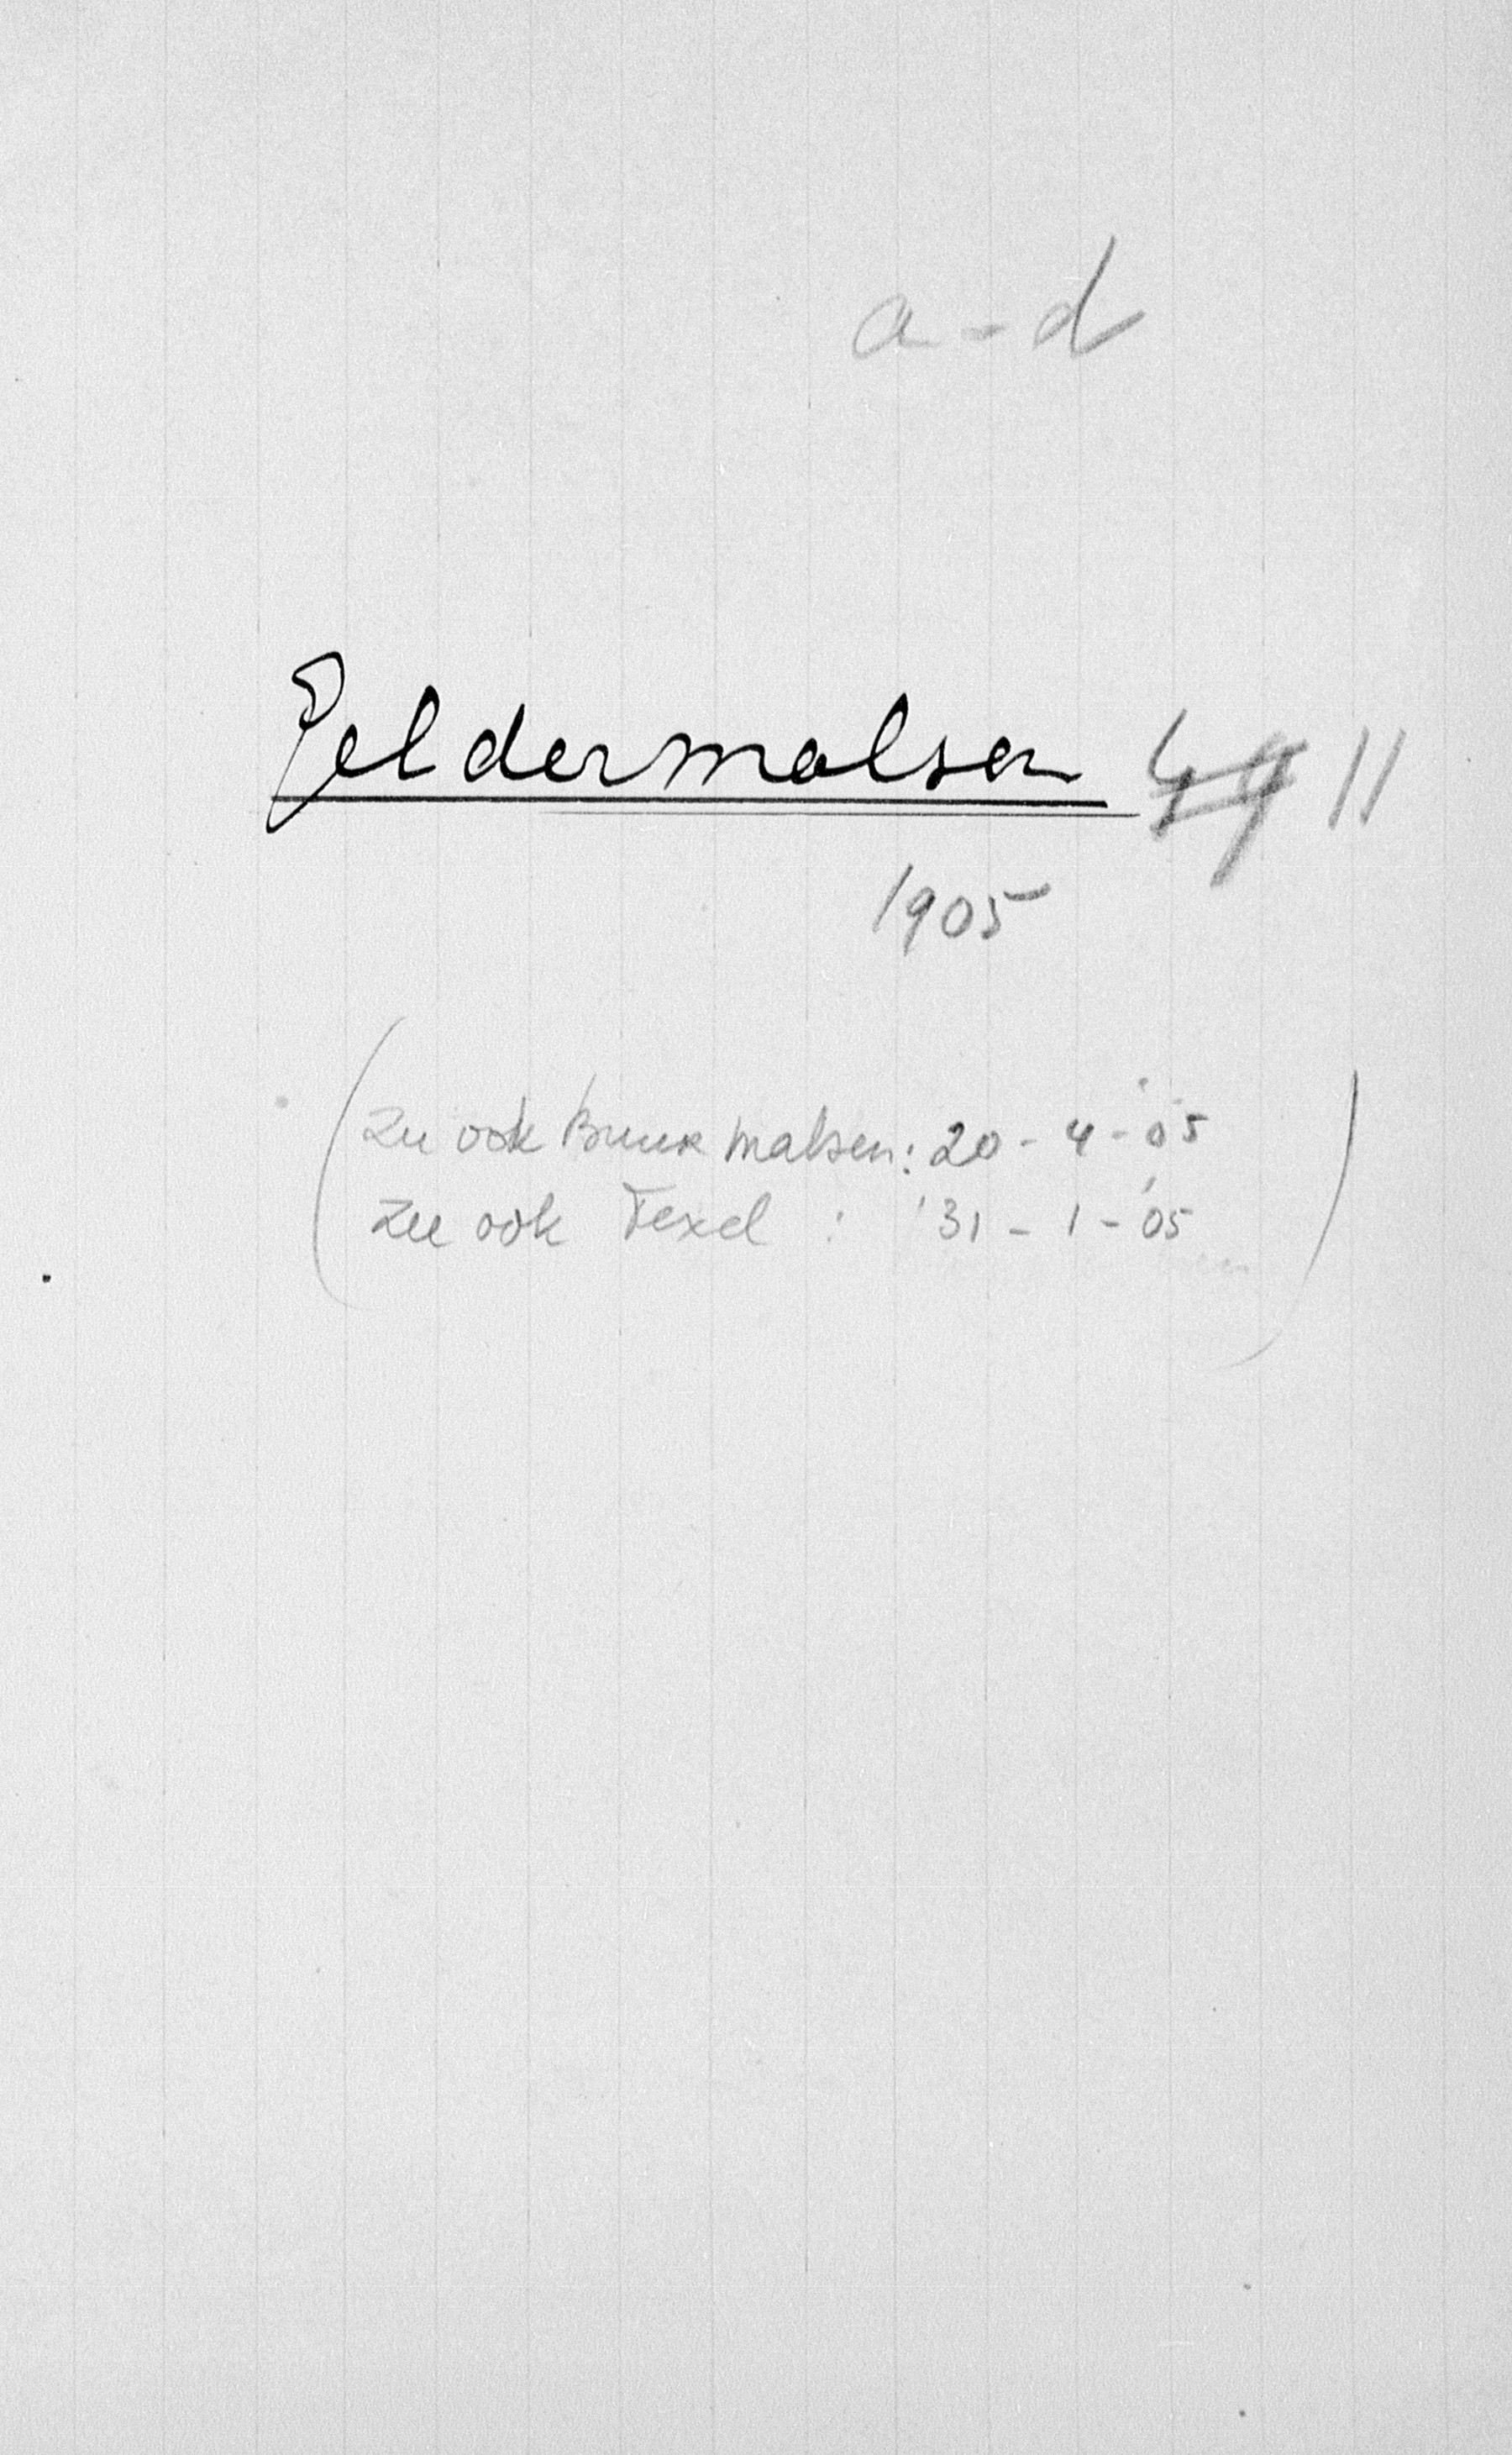 a - d
Geldermalsen 11
1905
(Zie ook Buurmalsen: 20-4-'05
Zie ook Texel : 31-1-'05)